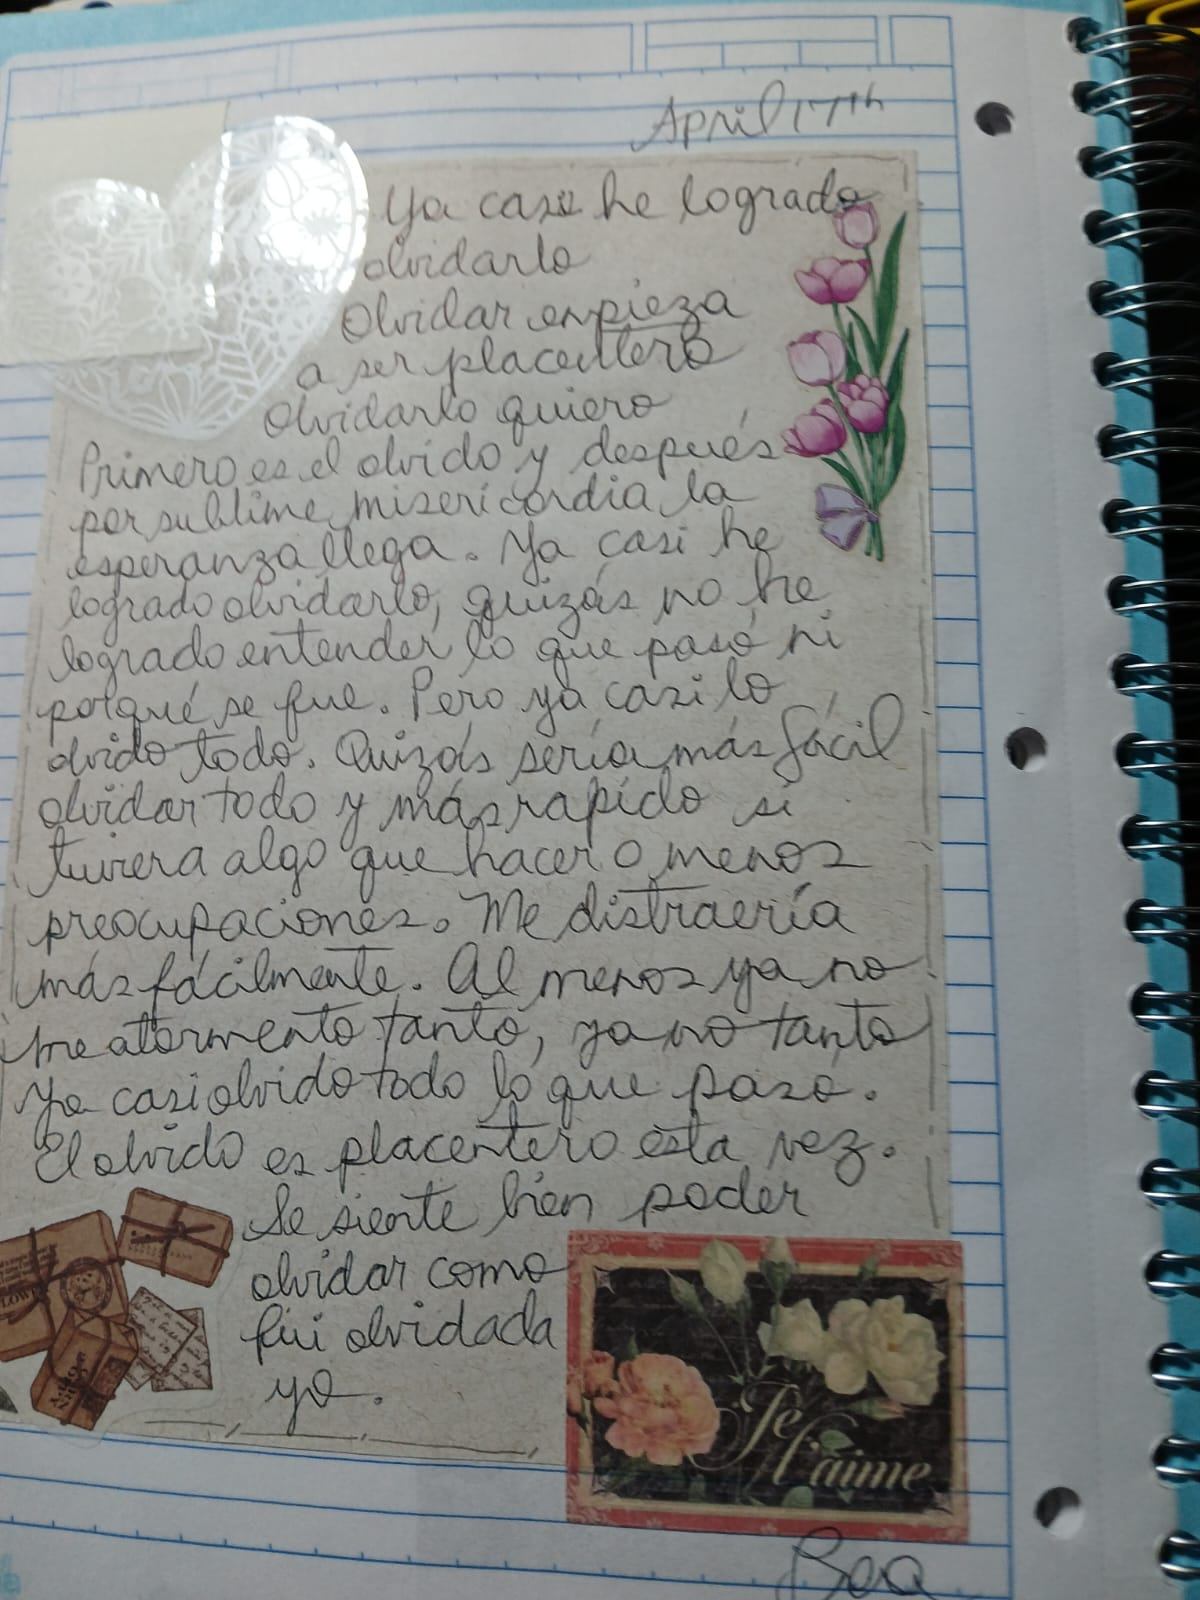 April 17th
Ya casi he logrado
olvidarlo
Olvidar empieza
a ser placentero
Olvidarlo quiero
Primero es el olvido y después
por sublime misericordia la
esperanza llega. Ya casi he
logrado olvidarlo, quizás no he
logrado entender lo que pasó ni
porqué se fue. Pero ya casi lo
olvido todo. Quizás sería más fácil
olvidar todo y más rapido si
tuviera algo que hacer o menos
preocupaciones. Me distraería
más fácilmente. Al menos ya no
me atormento tanto, ya no tanto
Ya casi olvido todo lo que pasó.
El olvido es placentero esta vez.
Se siente bien poder
olvidar como
fui olvidada
yo.
Je t'aime
Bea